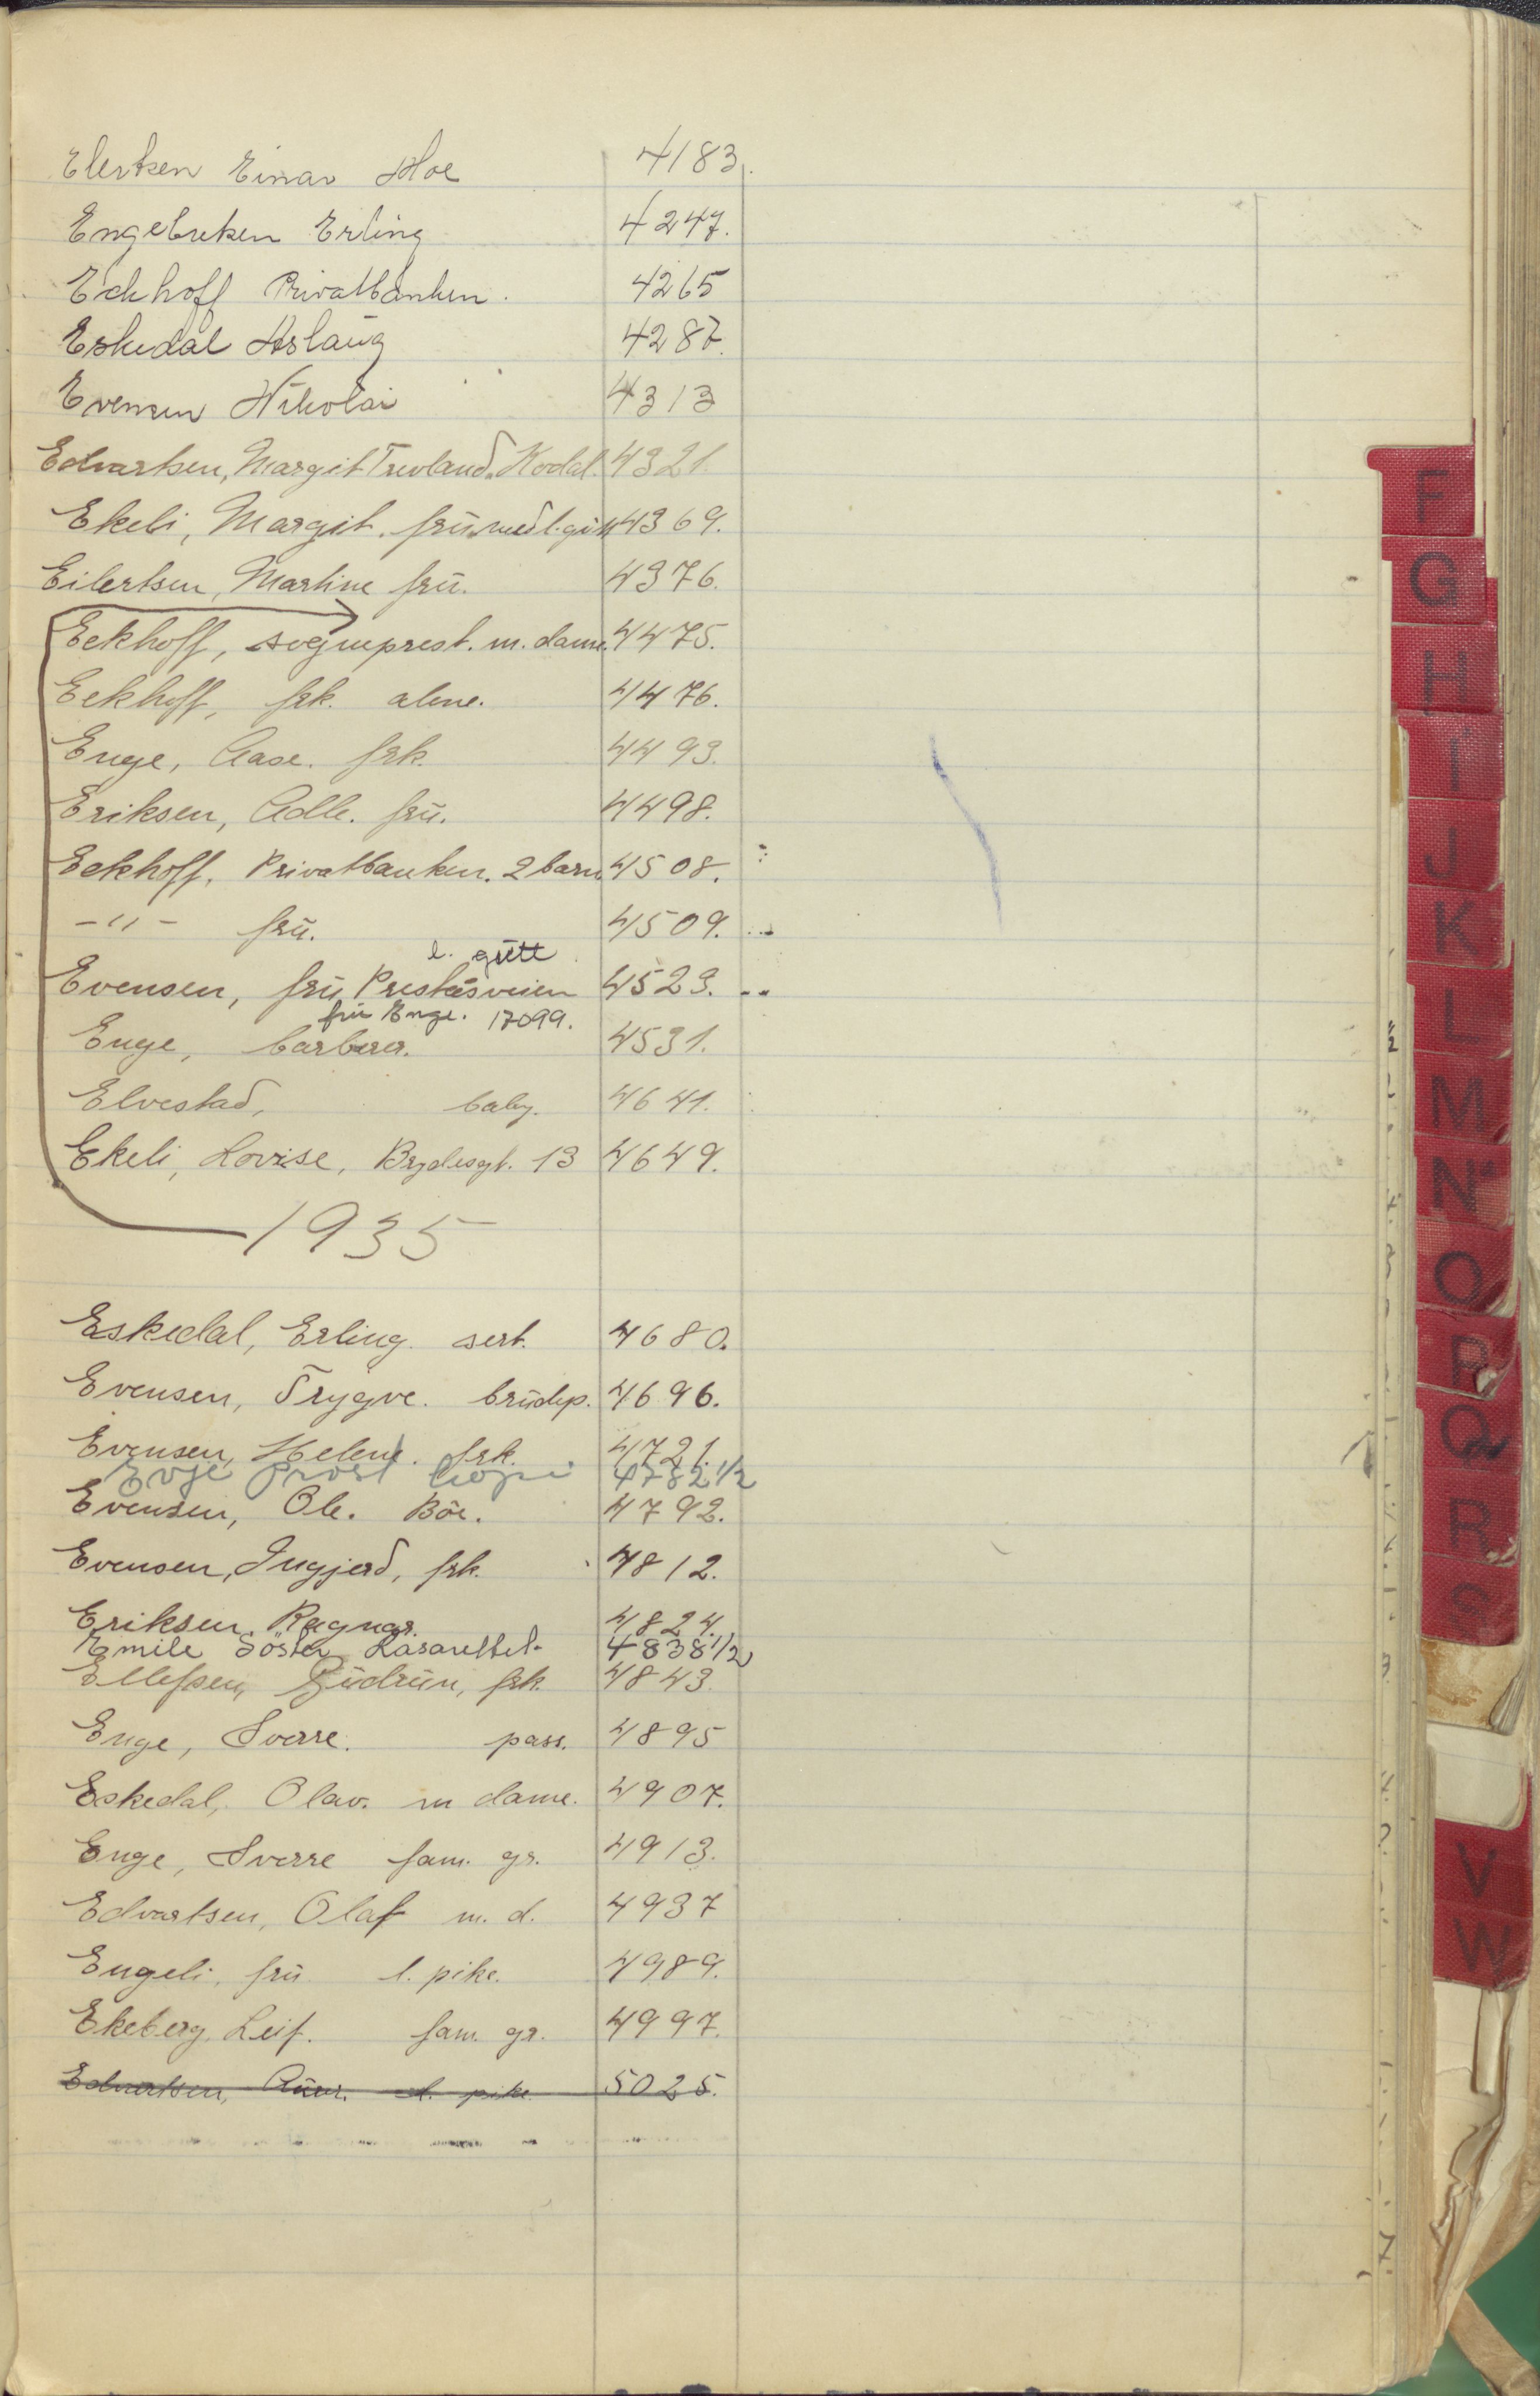 Elertsen Einar Moe 4183.
Engebretsen Erling 4247.
Eckhoff Privatbanken. 4265
Eskedal Aslaug 4287.
Evensen Nikolai 4313
Edvartsen, Margit Trevland. Kodal. 4321.
Ekeli, Margit. frü. med l. gütt 4369.
Eilertsen, Martine frü. 4376.
Eckhoff, sogneprest. m. dame. 4475.
Eckhoff, frk. alene. 4476.
Enge, Aase. frk. 4493.
Eriksen, Adle. frü. 4498.
Eckhoff, Privatbanken. 2 barn 4508.
-"- frü. 4509.
l. gütt
Evensen, frü Preståsveien 4523.
frü Enge. 17099.
Enge, barberer. 4531.
Elvestad, baby. 4641.
Ekeli, Lovise, Brydesgt. 13 4649.
1935
Eskedal, Erling. sert. 4680.
Evensen, Trygve. brüdep. 4696.
Evensen, Helene. frk. 4721.
Evje Prost kopi 4782 1/2
Evensen, Ole. Böe. 4792.
Evensen, Ingjerd, frk. 4812.
Eriksen, Ragnar. 4824.
Emilie Söster Lasarettet. 4838 1/2
Ellefsen, Güdrün, frk. 4843.
Enge, Sverre. pass. 4895
Eskedal, Olav. m dame. 4907.
Enge, Sverre fam. gr. 4913.
Edvartsen, Olaf m. d. 4937
Engeli, frü. l. pike. 4989.
Ekeberg, Leif. fam. gr. 4997.
Edvartsen, l. pike. 5025.
F
G
H
I
J
K
L
M
N
O
P
Q
R
S
V
W